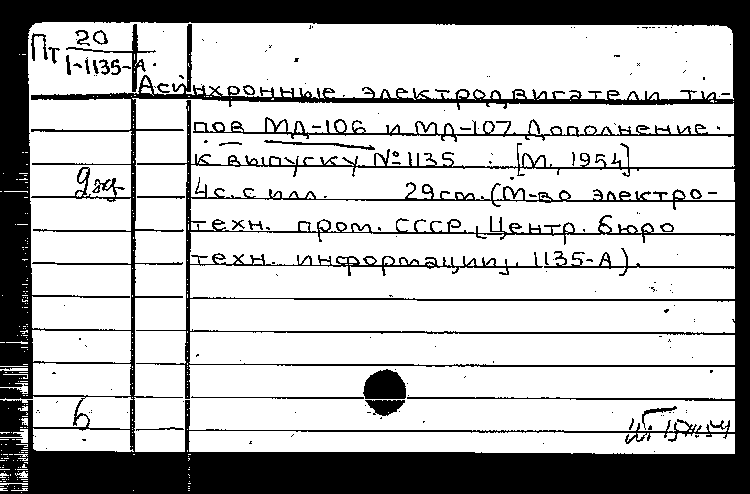 Пт 20
1-1135-А.
Асинхронные электродвигатели ти-
пов МД-106 и МД-107. Дополнение
к выпуску №1135. [М., 1954].
4с. с илл. 29 см. (М-во электро-
техн. пром. СССР. [Центр. бюро
техн. информации]. 1135-А).
6